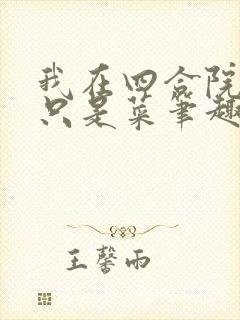 我在四合院
只是菜笔趣
王馨雨